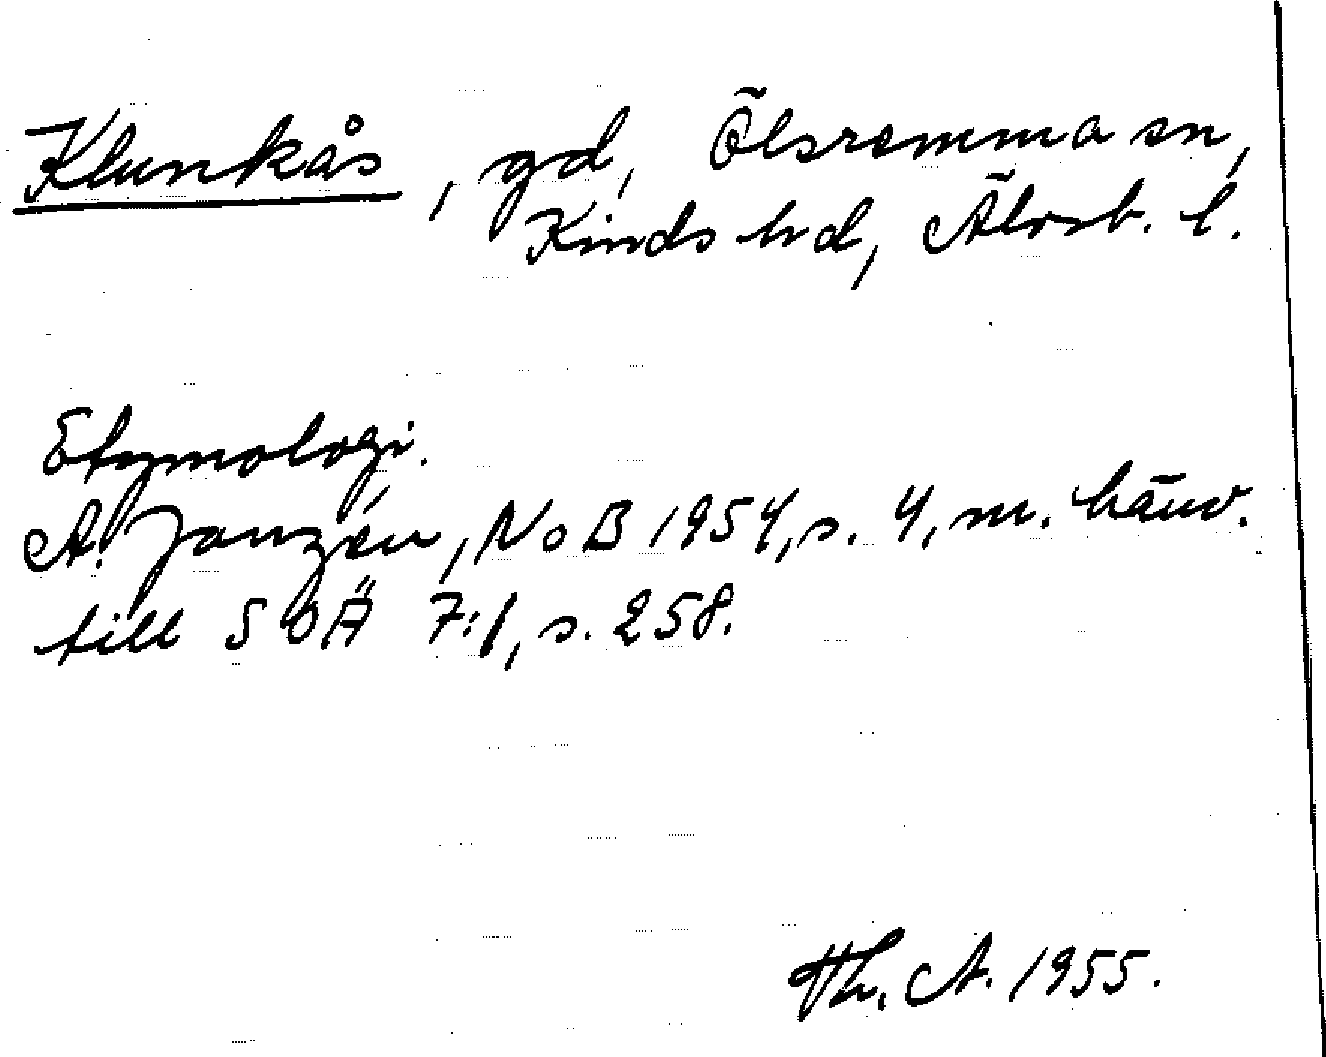 Klunkås, gd, Ölsremma sn,
Kinds hd, Älvsb. l.
Etymologi.
A. Janzén, NoB 1954, s. 4, m. hänv.
till SOÄ 7:1, s. 258.
Th. A. 1955.